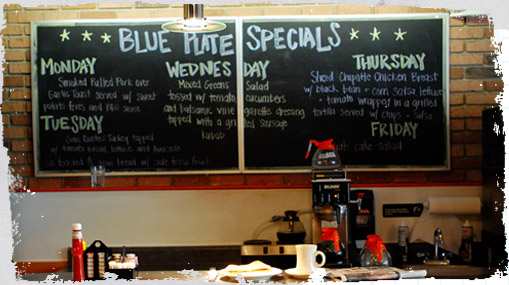 * * * BLUE PLATE SPECIALS * * *
MONDAY
Smoked Pulled Pork over
Garlic Toast served w/ sweet
potato fries and BBQ sauce
TUESDAY
Oven Roasted Turkey topped
w/ tomato bacon, lettuce and avocado
bread w/ side fresh fruit
WEDNESDAY
Mixed Greens Salad
tossed w/ tomato cucumbers
and balsamic vinegarette dressing
topped with a grilled sausage
kabob
THURSDAY
Sliced Chipotle Chicken Breast
w/ black bean + corn salsa lettuce
+ tomato wrapped in a grilled
tortilla served w/ chips + salsa
FRIDAY
cake salad
BUNN